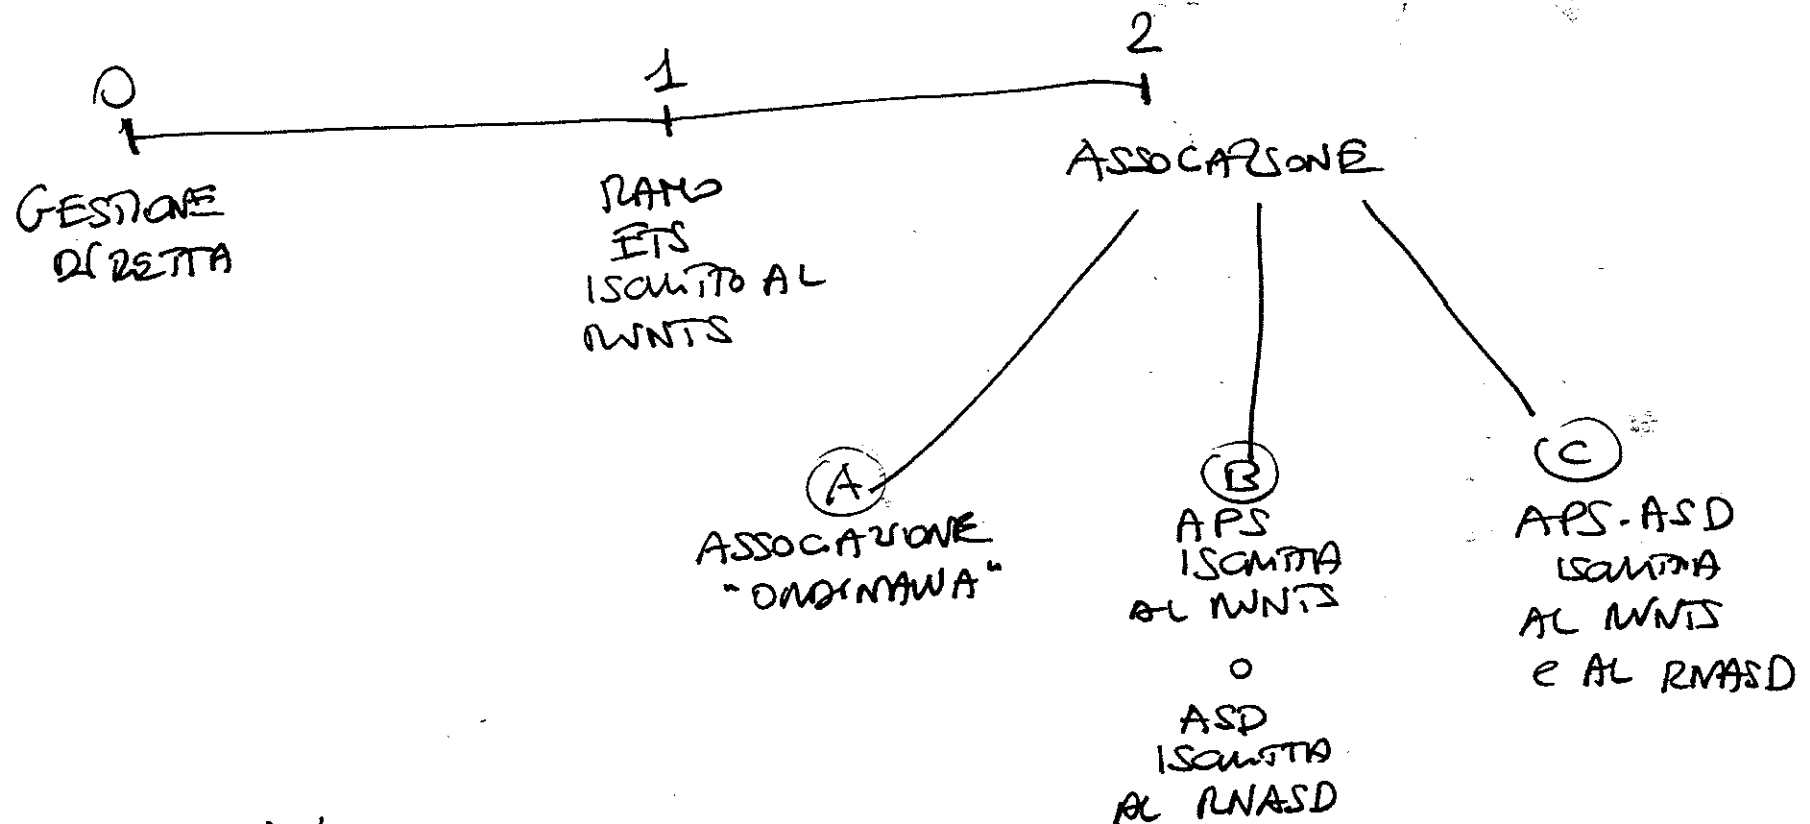 0
1
2
GESTIONE
DIRETTA
RAMO
ETS
ISCRITTO AL
RUNTS
ASSOCAZIONE
A
ASSOCAZIONE
"ORDINARIA"
B
APS
ISCRITTA
AL RUNTS
O
ASD
ISCRITTA
AL RNASD
C
APS-ASD
ISCRITTA
AL RUNTS
e AL RNASD